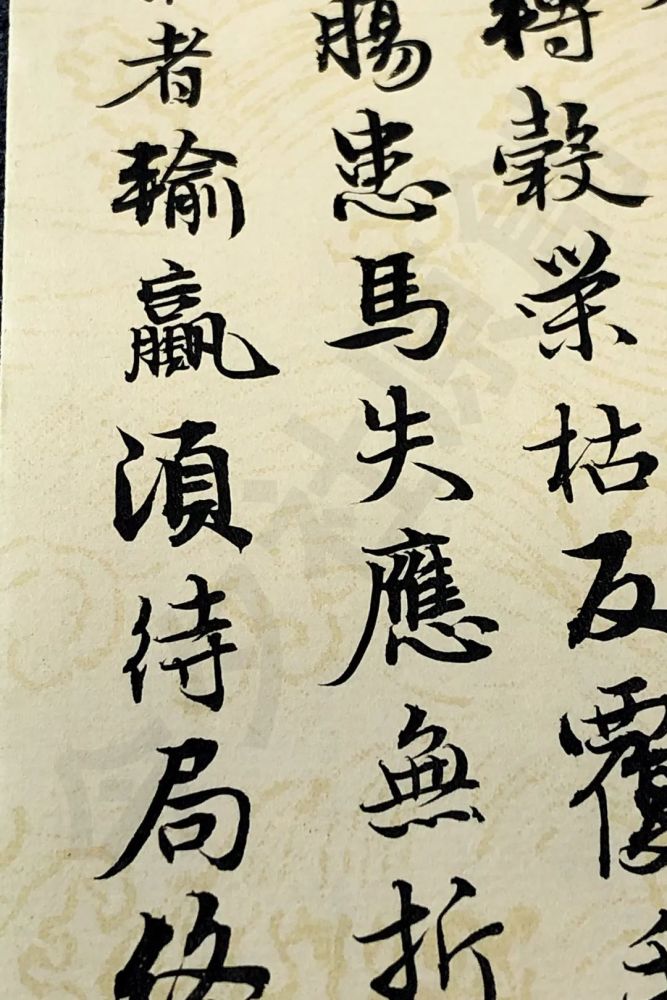 轉轂榮枯反覆手
腸患馬失應無折
者輸贏湏待局終